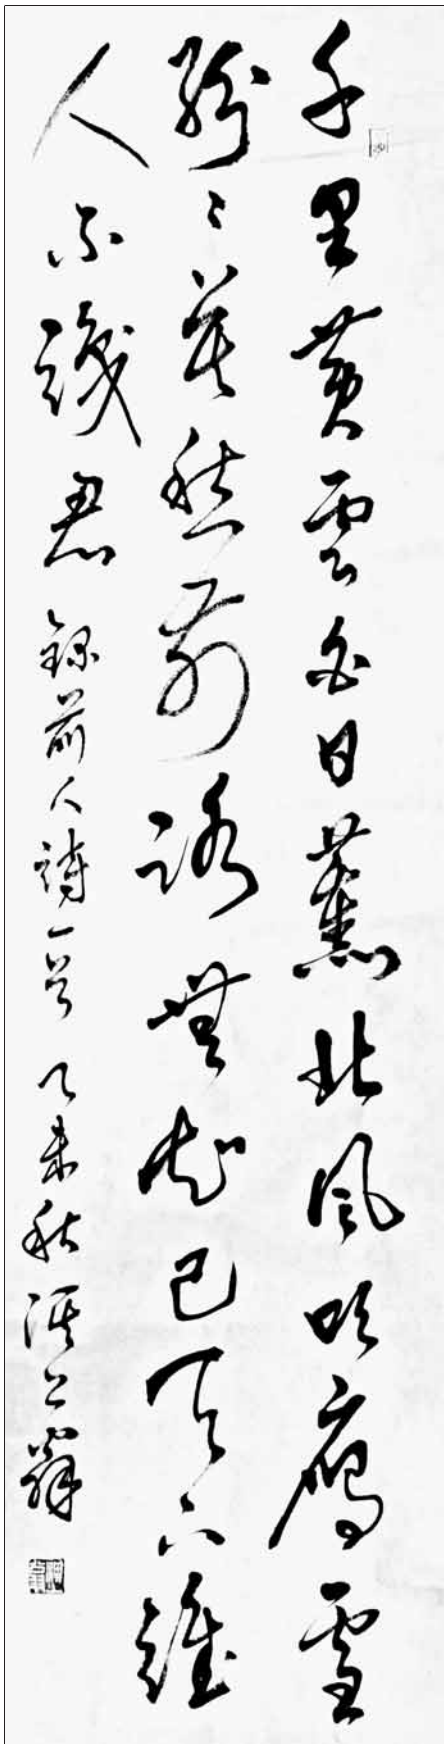 千里黄雲白日薰北風吹鴈雪
紛々莫愁前路無知己天下誰
人不識君 錄前人詩一首 乙未秋